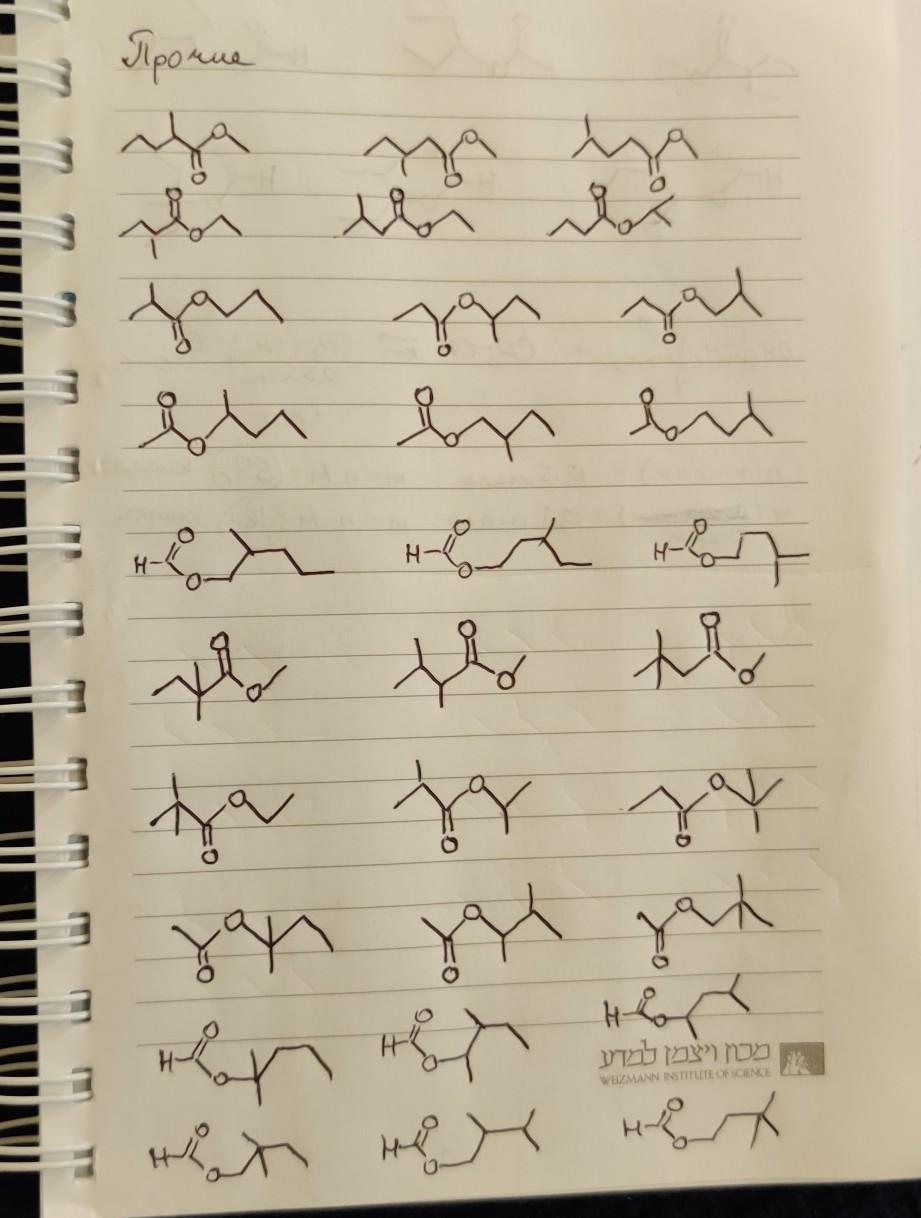 Прочие
O O O O O O
O O O O O O
O O O O O O
O O O O O O
H O O H O O H O O
O O O O O O
O O O O O O
O O O O O O
H O O H O O H O O
מכון ויצמן למדע
WEIZMANN INSTITUTE OF SCIENCE
H O O H O O H O O